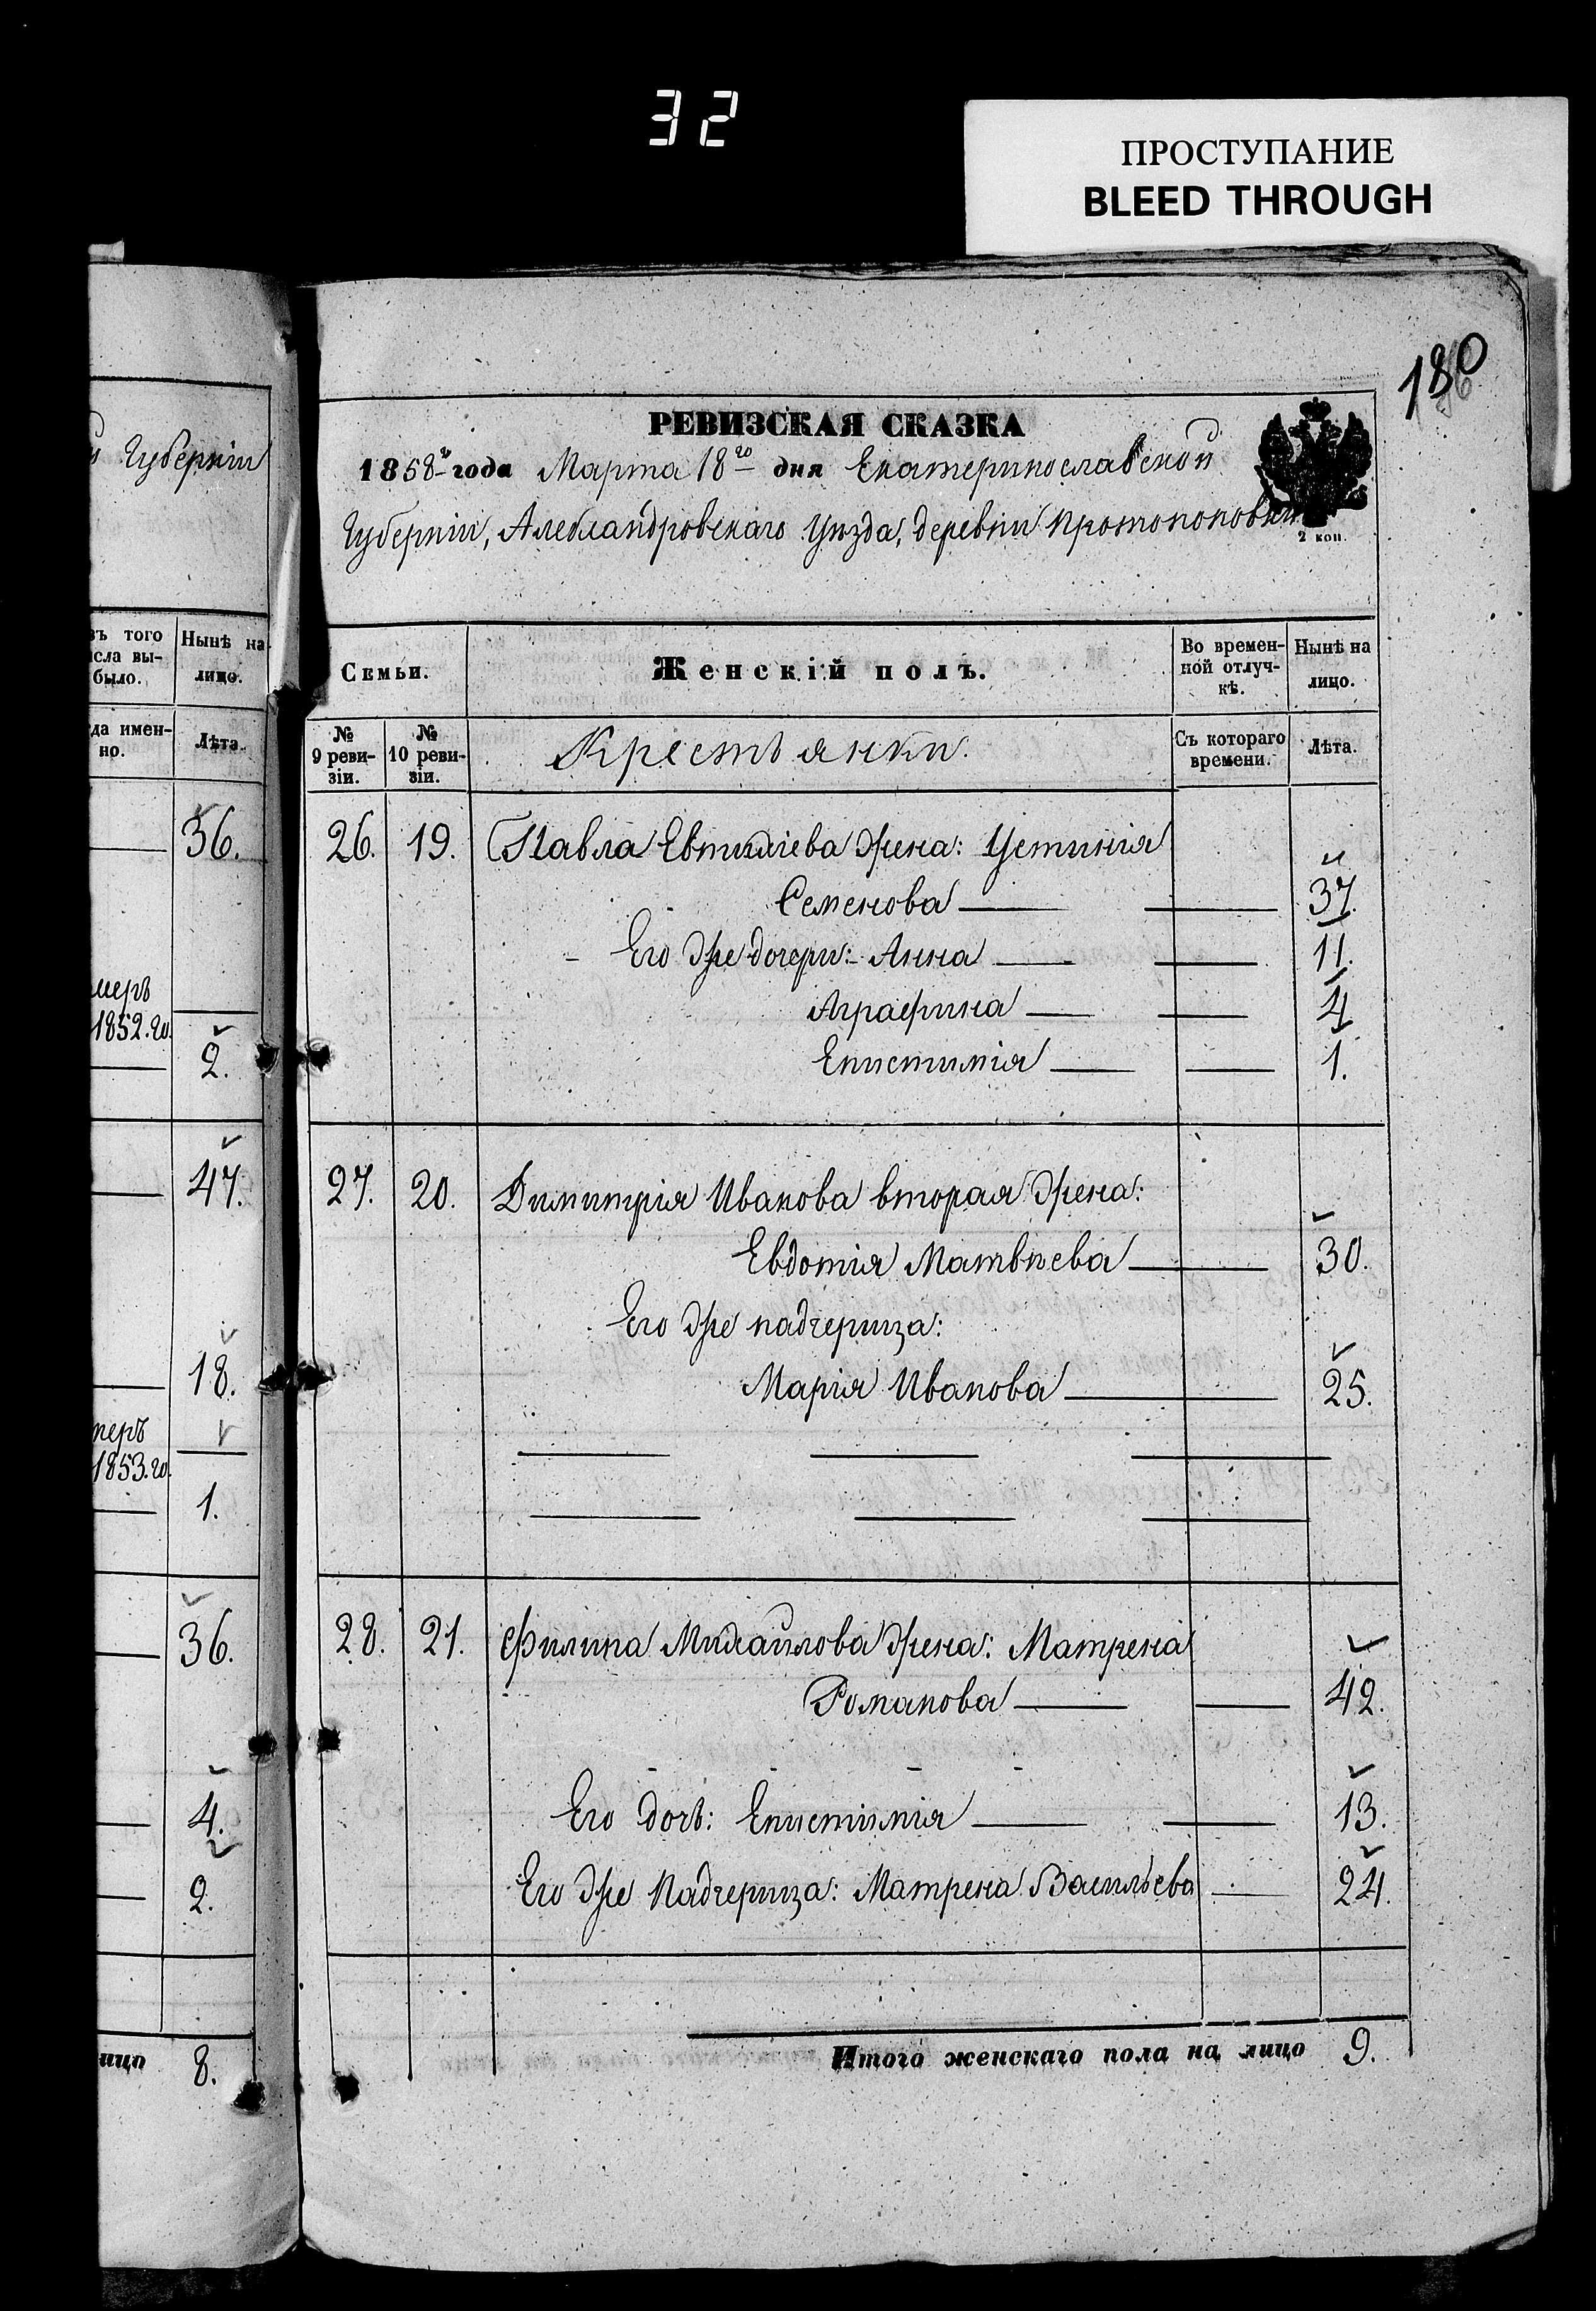 32
ПРОСТУПАНИЕ
BLEED THROUGH
180
Губерніи
въ того
исла вы-
было.
Нынѣ на
лицо.
да имен-
но.
Лѣта.
36.
меръ
1852. го.
2.
47.
18.
меръ
1853. го.
1.
36.
4.
2.
лицо 8.
РЕВИЗСКАЯ СКАЗКА
1858-го года Марта 18-го дня Екатеринославской
Губерніи, Александровскаго Уѣзда, деревни Протопоповки
2 коп.
Семьи.
Женскій полъ.
Во времен-
ной отлуч-
кѣ.
Нынѣ на
лицо.
№
9 реви-
зіи.
№
10 реви-
зіи.
Крестьянки.
Съ котораго
времени.
Лѣта.
26. 19. Павла Евтихіева жена: Устинія
Семенова 37.
Его же дочери: Анна 11.
Аграфина 4.
Епистимія 1.
27. 20. Димитрія Иванова вторая жена:
Евдотія Матвѣева 30.
Его же падчерица:
Марія Иванова 25.
28. 21. Филипа Михайлова жена: Матрена
Романова 42.
Его дочь: Епистимія 13.
Его же Падчерица: Матрена Васильева 24.
Итого женскаго пола на лицо 9.